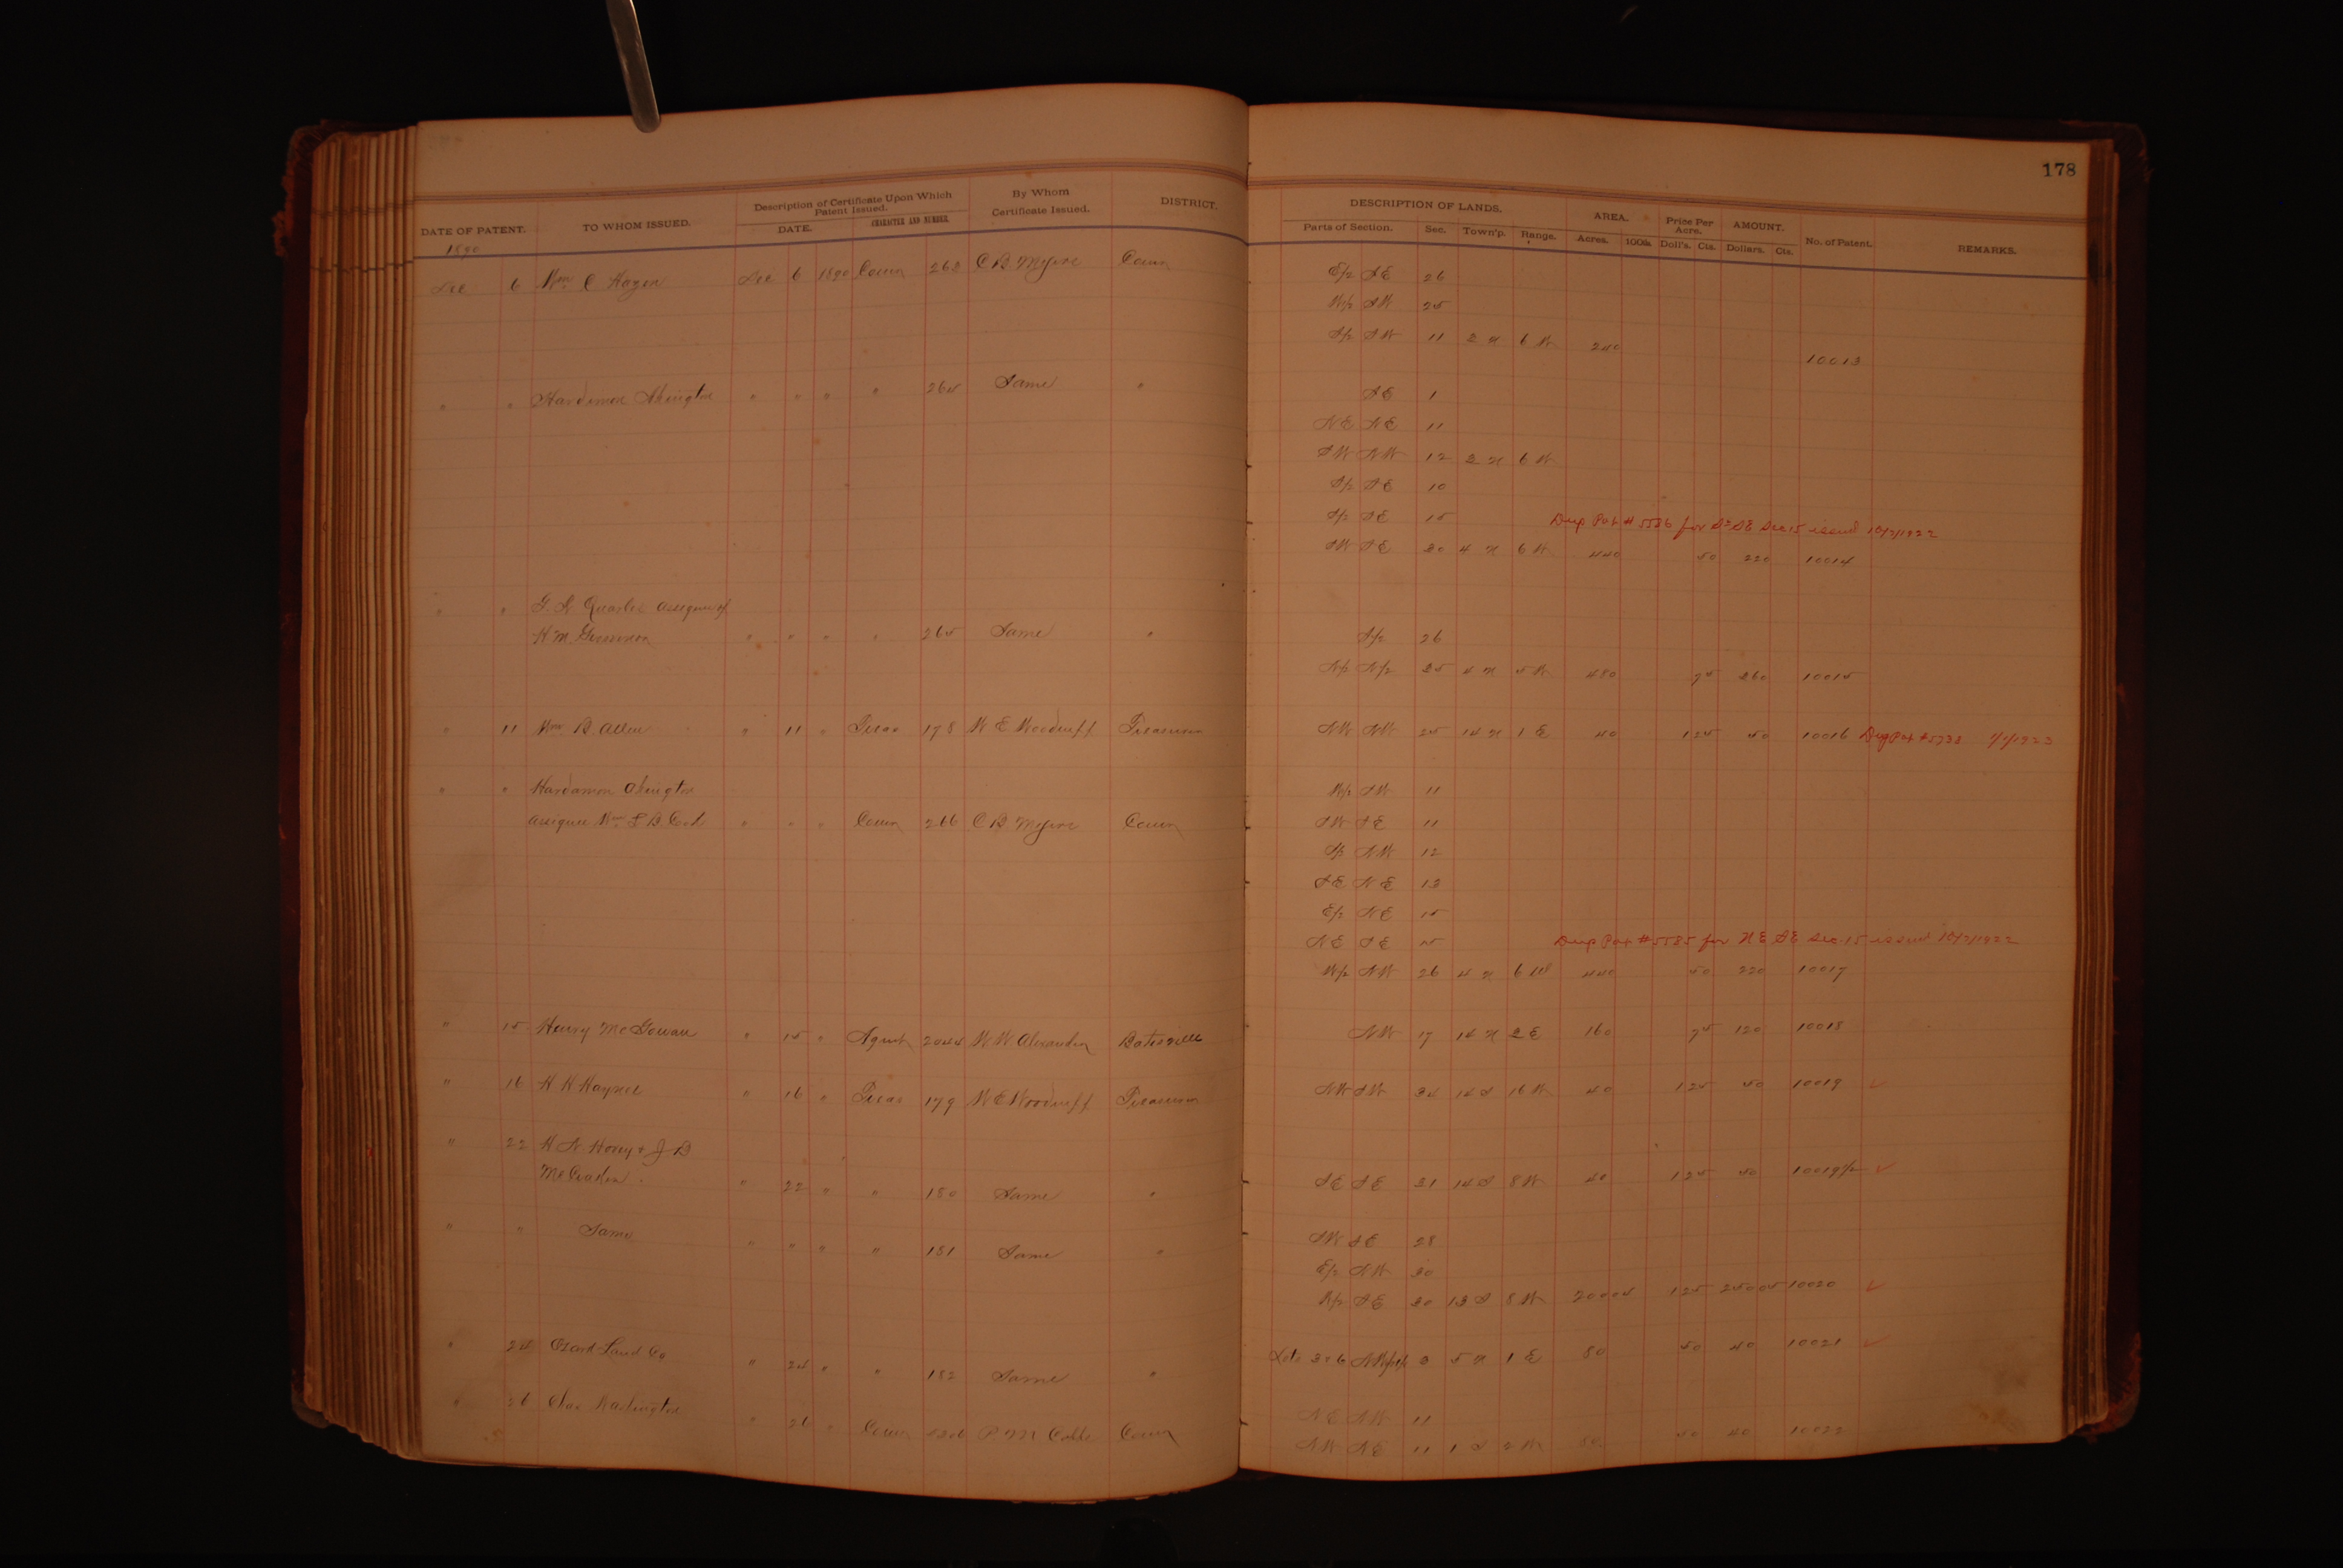 178
DATE OF PATENT. TO WHOM ISSUED. Description of Certificate Upon Which Patent Issued. DATE. CHARACTER AND NUMBER. By Whom Certificate Issued. DISTRICT. DESCRIPTION OF LANDS. Parts of Section. Sec. Town'p. Range. AREA. Acres. 100ths. Price Per Acre. Doll's. Cts. AMOUNT. Dollars. Cts. No. of Patent. REMARKS.
1890
Dec 6 Wm. C Hazen Dec 6 1890 Coun 263 C B Myers Coun E/2 SE 26
W/2 SW 25
S/2 SW 11 3 N 6 W 240 10013
" " Hardimon Abington " " " " 264 Same " SE 1
NE NE 11
SW NW 12 3 N 6 W
S/2 SE 10
S/2 SE 15 Dup Pat # 5586 for S2 SE Sec 15 issued 10/2/1922
SW SE 30 4 N 6 W 440 50 220 10014
" " Assignee of
H M " " " " 265 Same " S/2 26
N/2 N/2 35 4 N 5 W 480 75 360 10015
" 11 Wm B Allen " 11 " Treas 178 W E Woodruff Treasurer NW NW 25 14 N 1 E 40 1 25 50 10016 Dup Pat # 5738 1923
" " Hardamon Abington W/2 SW 11
assignee Wm F B " " " Coun 266 C B Myers Coun SW SE 11
S/2 NW 12
SE NE 13
E/2 NE 15
NE SE 15 Dup Pat # 5585 for NE SE Sec 15 issued 10/2/1922
W/2 NW 26 4 N 6 W 440 50 220 10017
" 15 Henry McGowan " 15 " Agent 2044 W W Alexander Batesville NW 17 14 N 3 E 160 75 120 10018
" 16 H H Haynie " 16 " Treas 179 W E Woodruff Treasurer NW SW 34 14 S 16 W 40 1 25 50 10019 ✓
" 22 H N + J B
McCraken " 22 " " 180 Same " SE SE 31 14 S 8 W 40 1 25 50 10019½ ✓
" " Same " " " " 181 Same " SW SE 28
E/2 NW 30
W/2 SE 30 13 S 8 W 200 04 1 25 250 05 10020 ✓
" 24 Ozark Land Co " 24 " " 182 Same " Lots 3 & 6 3 5 N 1 E 80 50 40 10021 ✓
" 26 Chas Washington " 26 " Coun P M Cobbs Coun NE NW 11
NW NE 11 1 S 2 W 80 50 40 10022